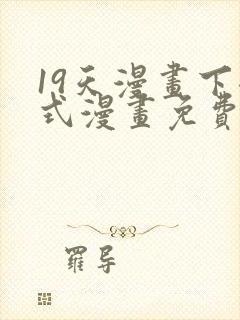 19天漫畫下
式漫畫免費
羅导